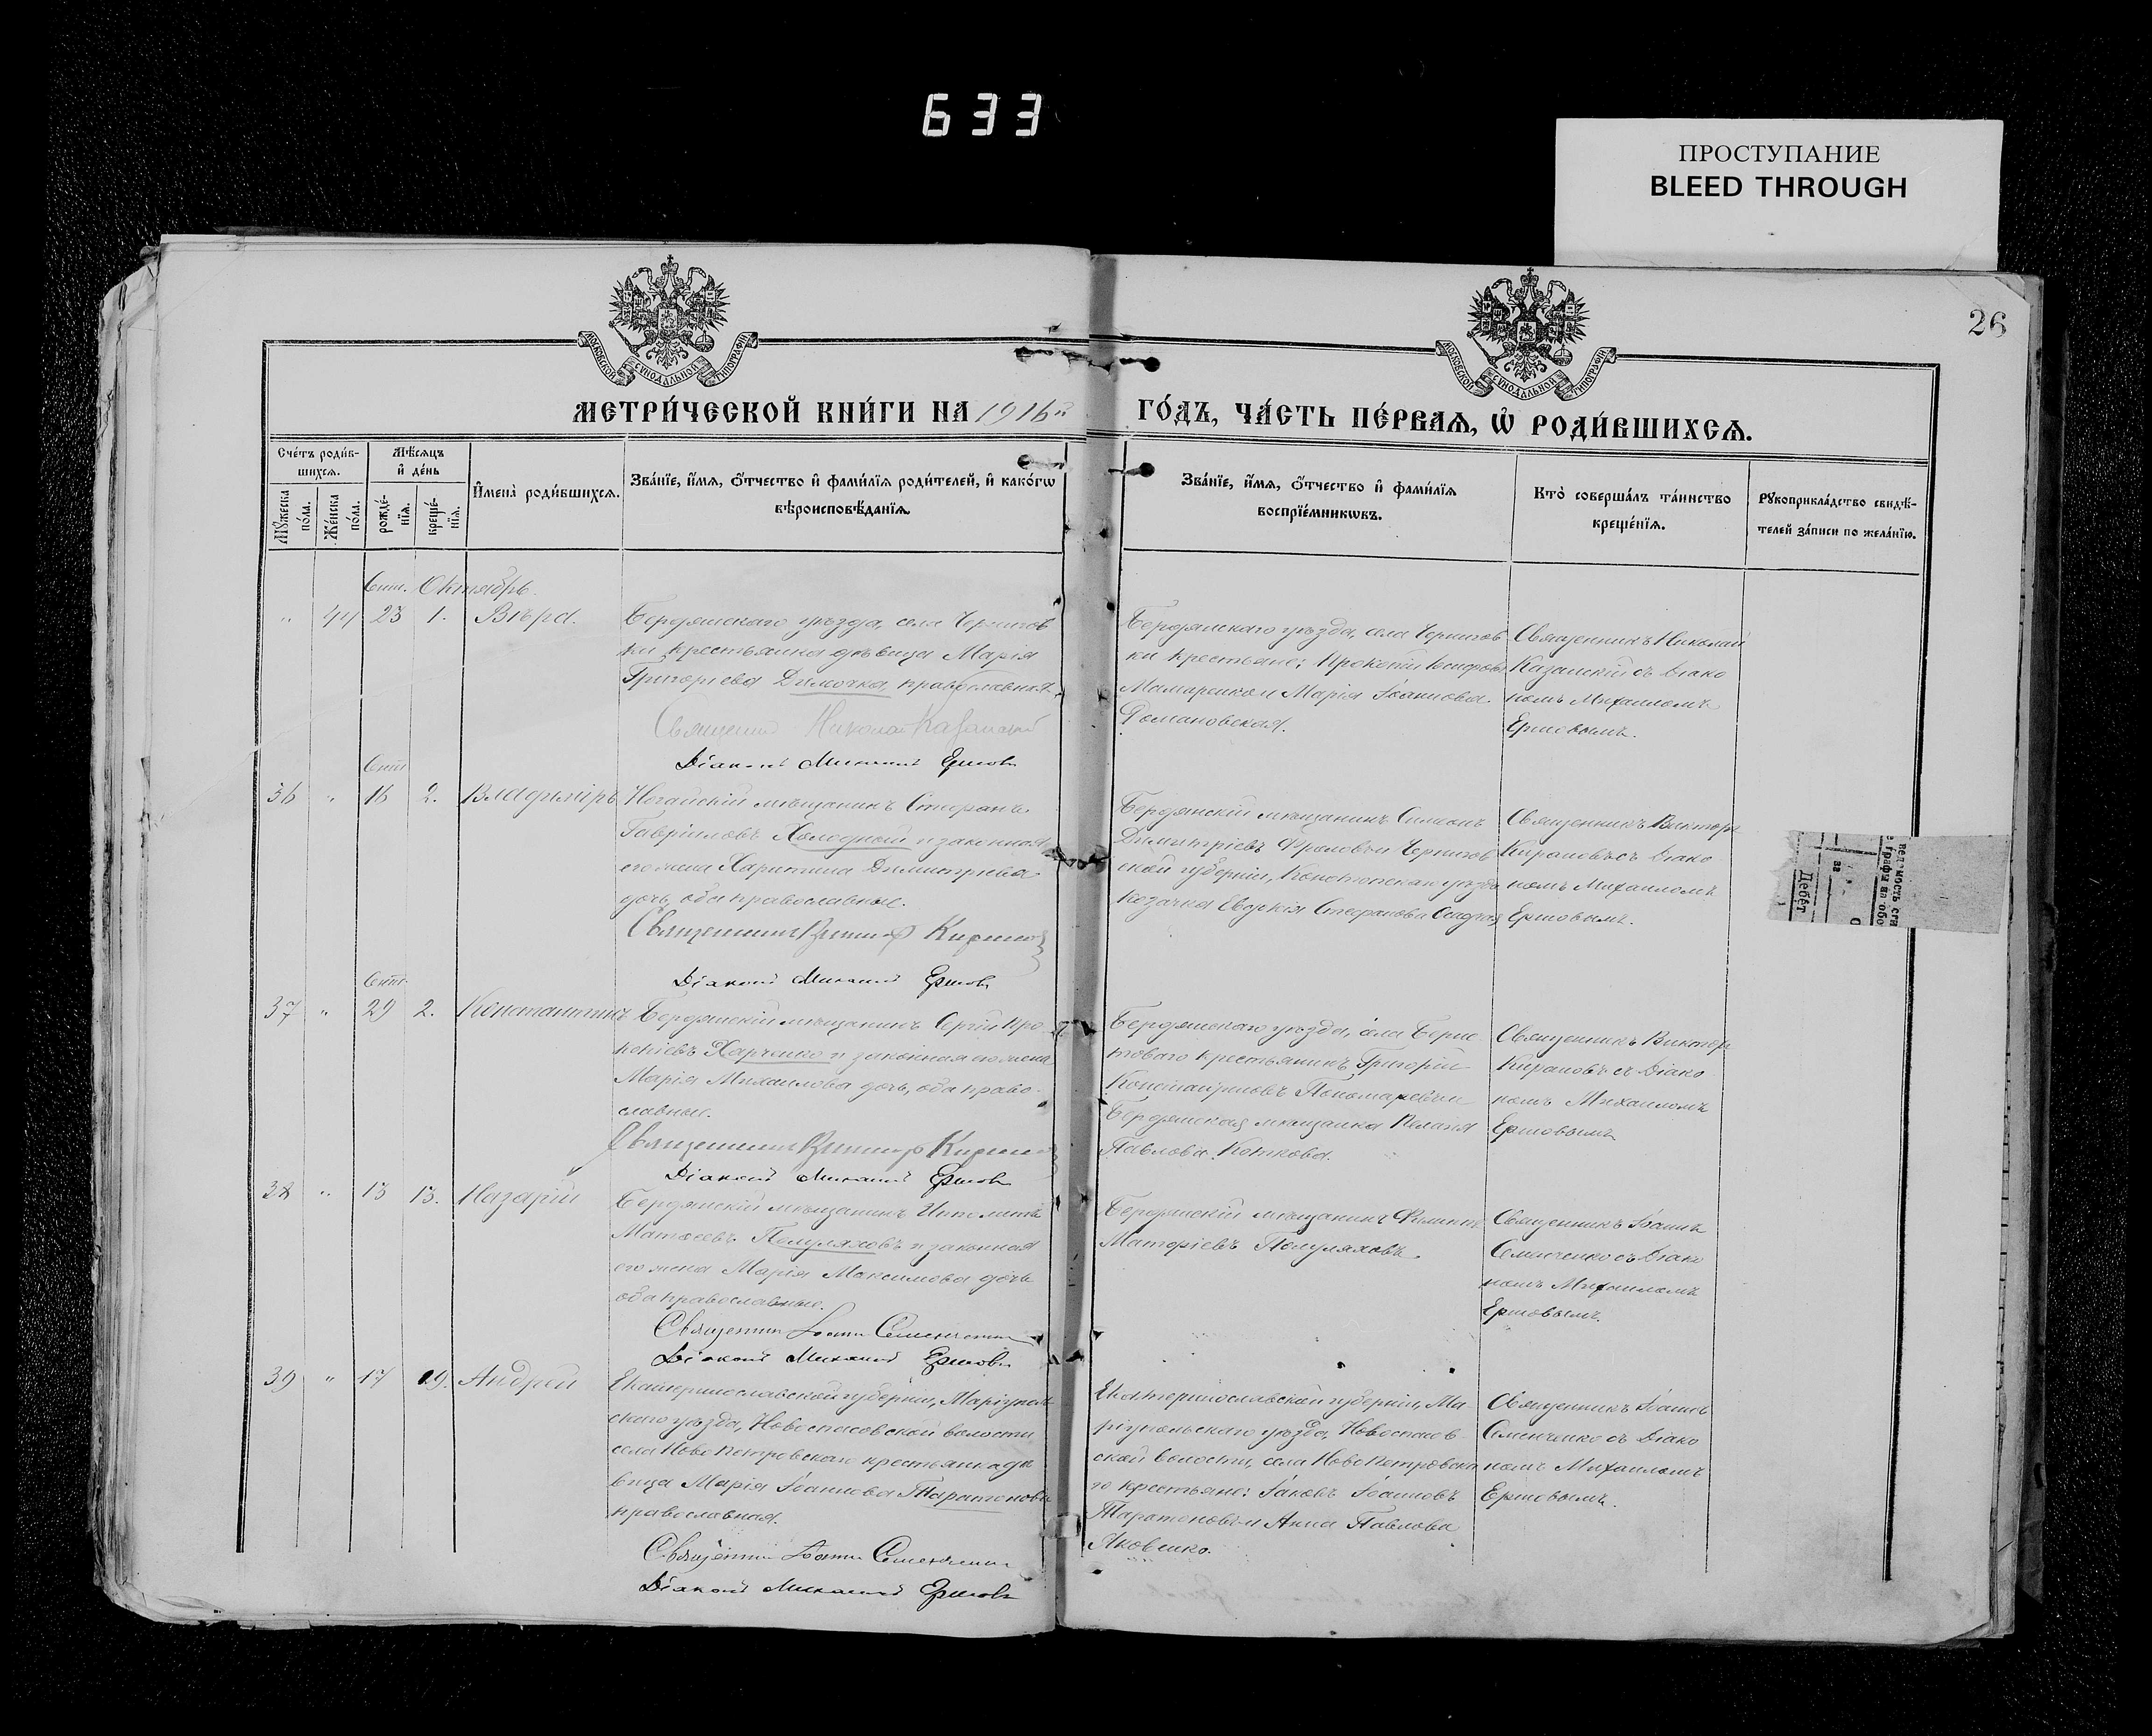 633
ПРОСТУПАНИЕ
BLEED THROUGH
26
МОСКОВСКОЙ СѴНОДАЛЬНОЙ ТИПОГРАФІИ
МОСКОВСКОЙ СѴНОДАЛЬНОЙ ТИПОГРАФІИ
МЕТРИ́ЧЕСКОЙ КНИ́ГИ НА 1916й ГО́ДЪ, ЧА́СТЬ ПЕ́РВАѦ, Ѽ РОДИ́ВШИХСѦ.
Сче́тъ роди́в-
шихся.
Мꙋжеска по́ла.
Же́нска по́ла.
Мѣ́сяцъ
и҆ де́нь
рожде́-
нїѧ.
креще́-
нїѧ.
И҆мена̀ роди́вшихсѧ.
Зва́нїе, и҆́мѧ, ѻ҆́тчество и҆ фами́лїѧ роди́телей, и҆ како́гѡ
вѣроисповѣ́данїѧ.
Зва́нїе, и҆́мѧ, ѻ҆́тчество и҆ фами́лїѧ
воспрїе́мникѡвъ.
Кто̀ соверша́лъ та́инство
креще́нїѧ.
Рꙋкоприкла́дство свидѣ́-
телей за́писи по жела́нїю.
Сент. Октябрь.
" 44 23 1. Вѣра.
Бердянскаго уѣзда, села Чернигов
ки крестьянка дѣвица Марія
Григорьева Димочка, православная.
Священник Николай Казанскій
Діаконъ Михаилъ Ершовъ
Бердянскаго уѣзда, села Чернигов
ки крестьяне; Прокопій
и Марія Іоаннова
Романовская.
Священникъ Николай
Казанскій съ Діако
номъ Михаиломъ
Ершовымъ.
Сент.
36 " 16 2. Владиміръ
Ногайскій мѣщанинъ Стефанъ
Гавріиловъ Холодный и законная
его жена Харитина Димитріева
дочь, оба православные.
Священникъ Викторъ Кирановъ
Діаконъ Михаилъ Ершовъ
Бердянскій мѣщанинъ Симеонъ
Димитріевъ Фроловъ и Чернигов
ской губерніи, Конотопскаго уѣзда
козачка Евдокія Стефанова
Священникъ Викторъ
Кирановъ съ Діако
номъ Михаиломъ
Ершовымъ.
Сент.
37 " 29 2. Константинъ
Бердянскій мѣщанинъ Сергій Про
копіевъ Харченко и законная его жена
Марія Михаилова дочь, оба право
славные.
Священникъ Викторъ Кирановъ
Діаконъ Михаилъ Ершовъ
Бердянскаго уѣзда, села Берес
товаго крестьянинъ Григорій
Константиновъ Пономаревъ и
Бердянская мѣщанка Пелагія
Павлова Коткова.
Священникъ Викторъ
Кирановъ съ Діако
номъ Михаиломъ
Ершовымъ
38 " 13 13. Назарій
Бердянскій мѣщанинъ Ипполитъ
Матѳеевъ Полуляховъ и законная
его жена Марія Максимова дочь
оба православные.
Священникъ Іоаннъ Семенченко
Діаконъ Михаилъ Ершовъ
Бердянскій мѣщанинъ Филиппъ
Полуляховъ.
Священникъ Іоаннъ
Семенченко съ Діако
номъ Михаиломъ
Ершовымъ.
39 " 17 19. Андрей
Екатеринославской губерніи, Маріуполь
скаго уѣзда, Новоспасовской волости
села Новопетровскаго крестьянка дѣ
вица Марія Іоаннова Таратонова
православная.
Священникъ Іоаннъ Семенченко
Діаконъ Михаилъ Ершовъ
Екатеринославской губерніи, Ма
ріупольскаго уѣзда, Новоспасов
ской волости, села Новопетровска
го крестьяне: Іаковъ Іоанновъ
Таратоновъ и Анна Павлова
Яковенко.
Священникъ Іоаннъ
Семенченко съ Діако
номъ Михаиломъ
Ершовымъ.
Дебет